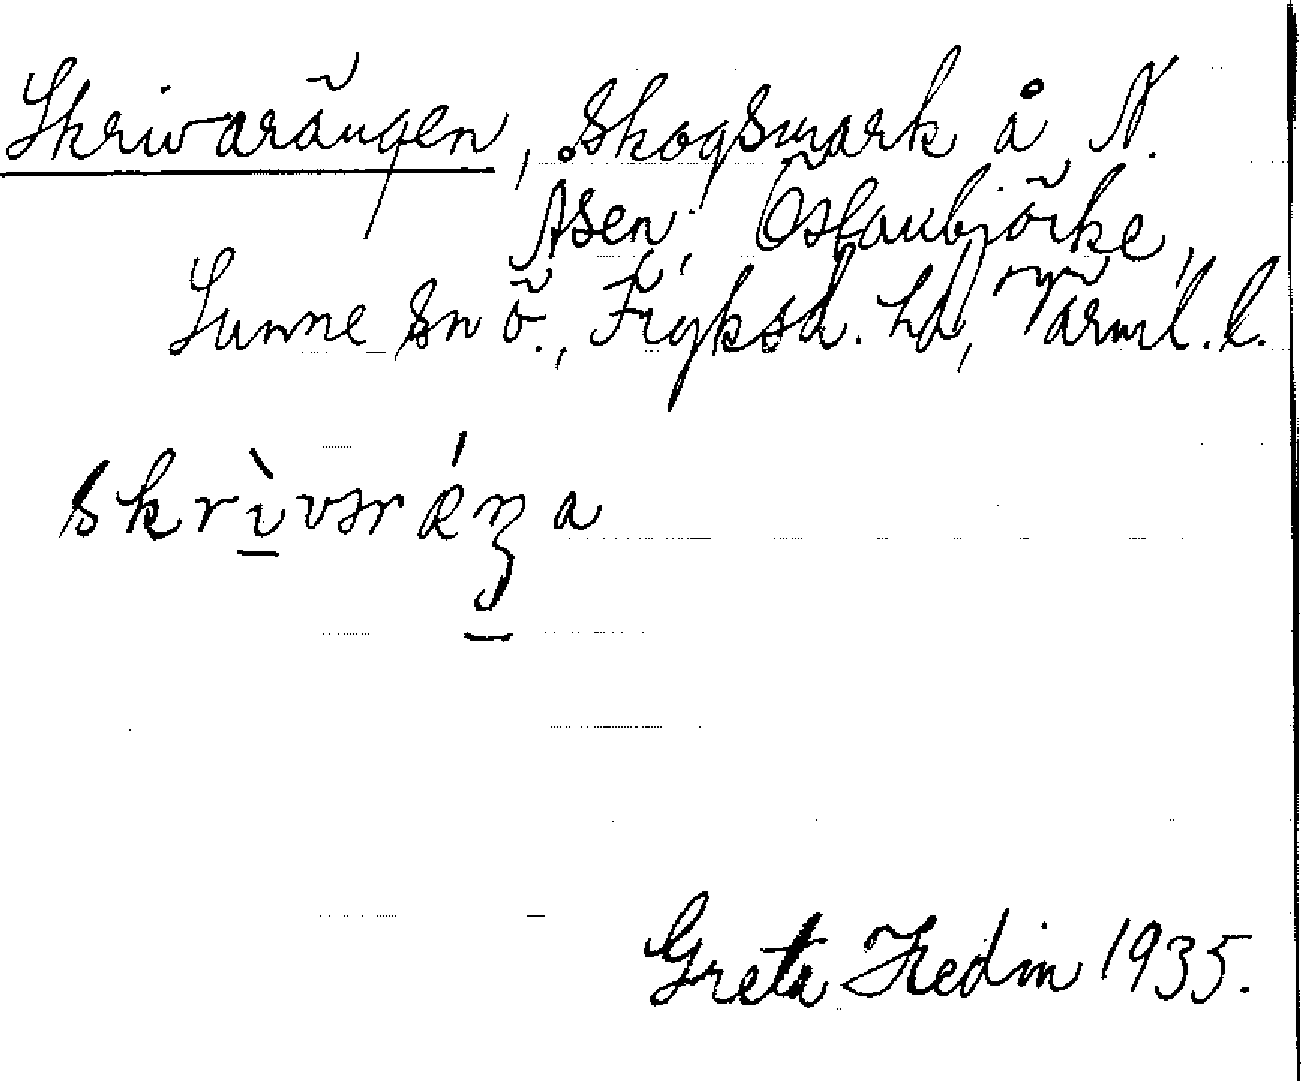 Skrivarängen, skogsmark å N.
Åsen, Östanbjörke,
Sunne sn ö., Fryksd. hd, Värml. l.
skrìvarǽŋa
Greta Hedin 1935.